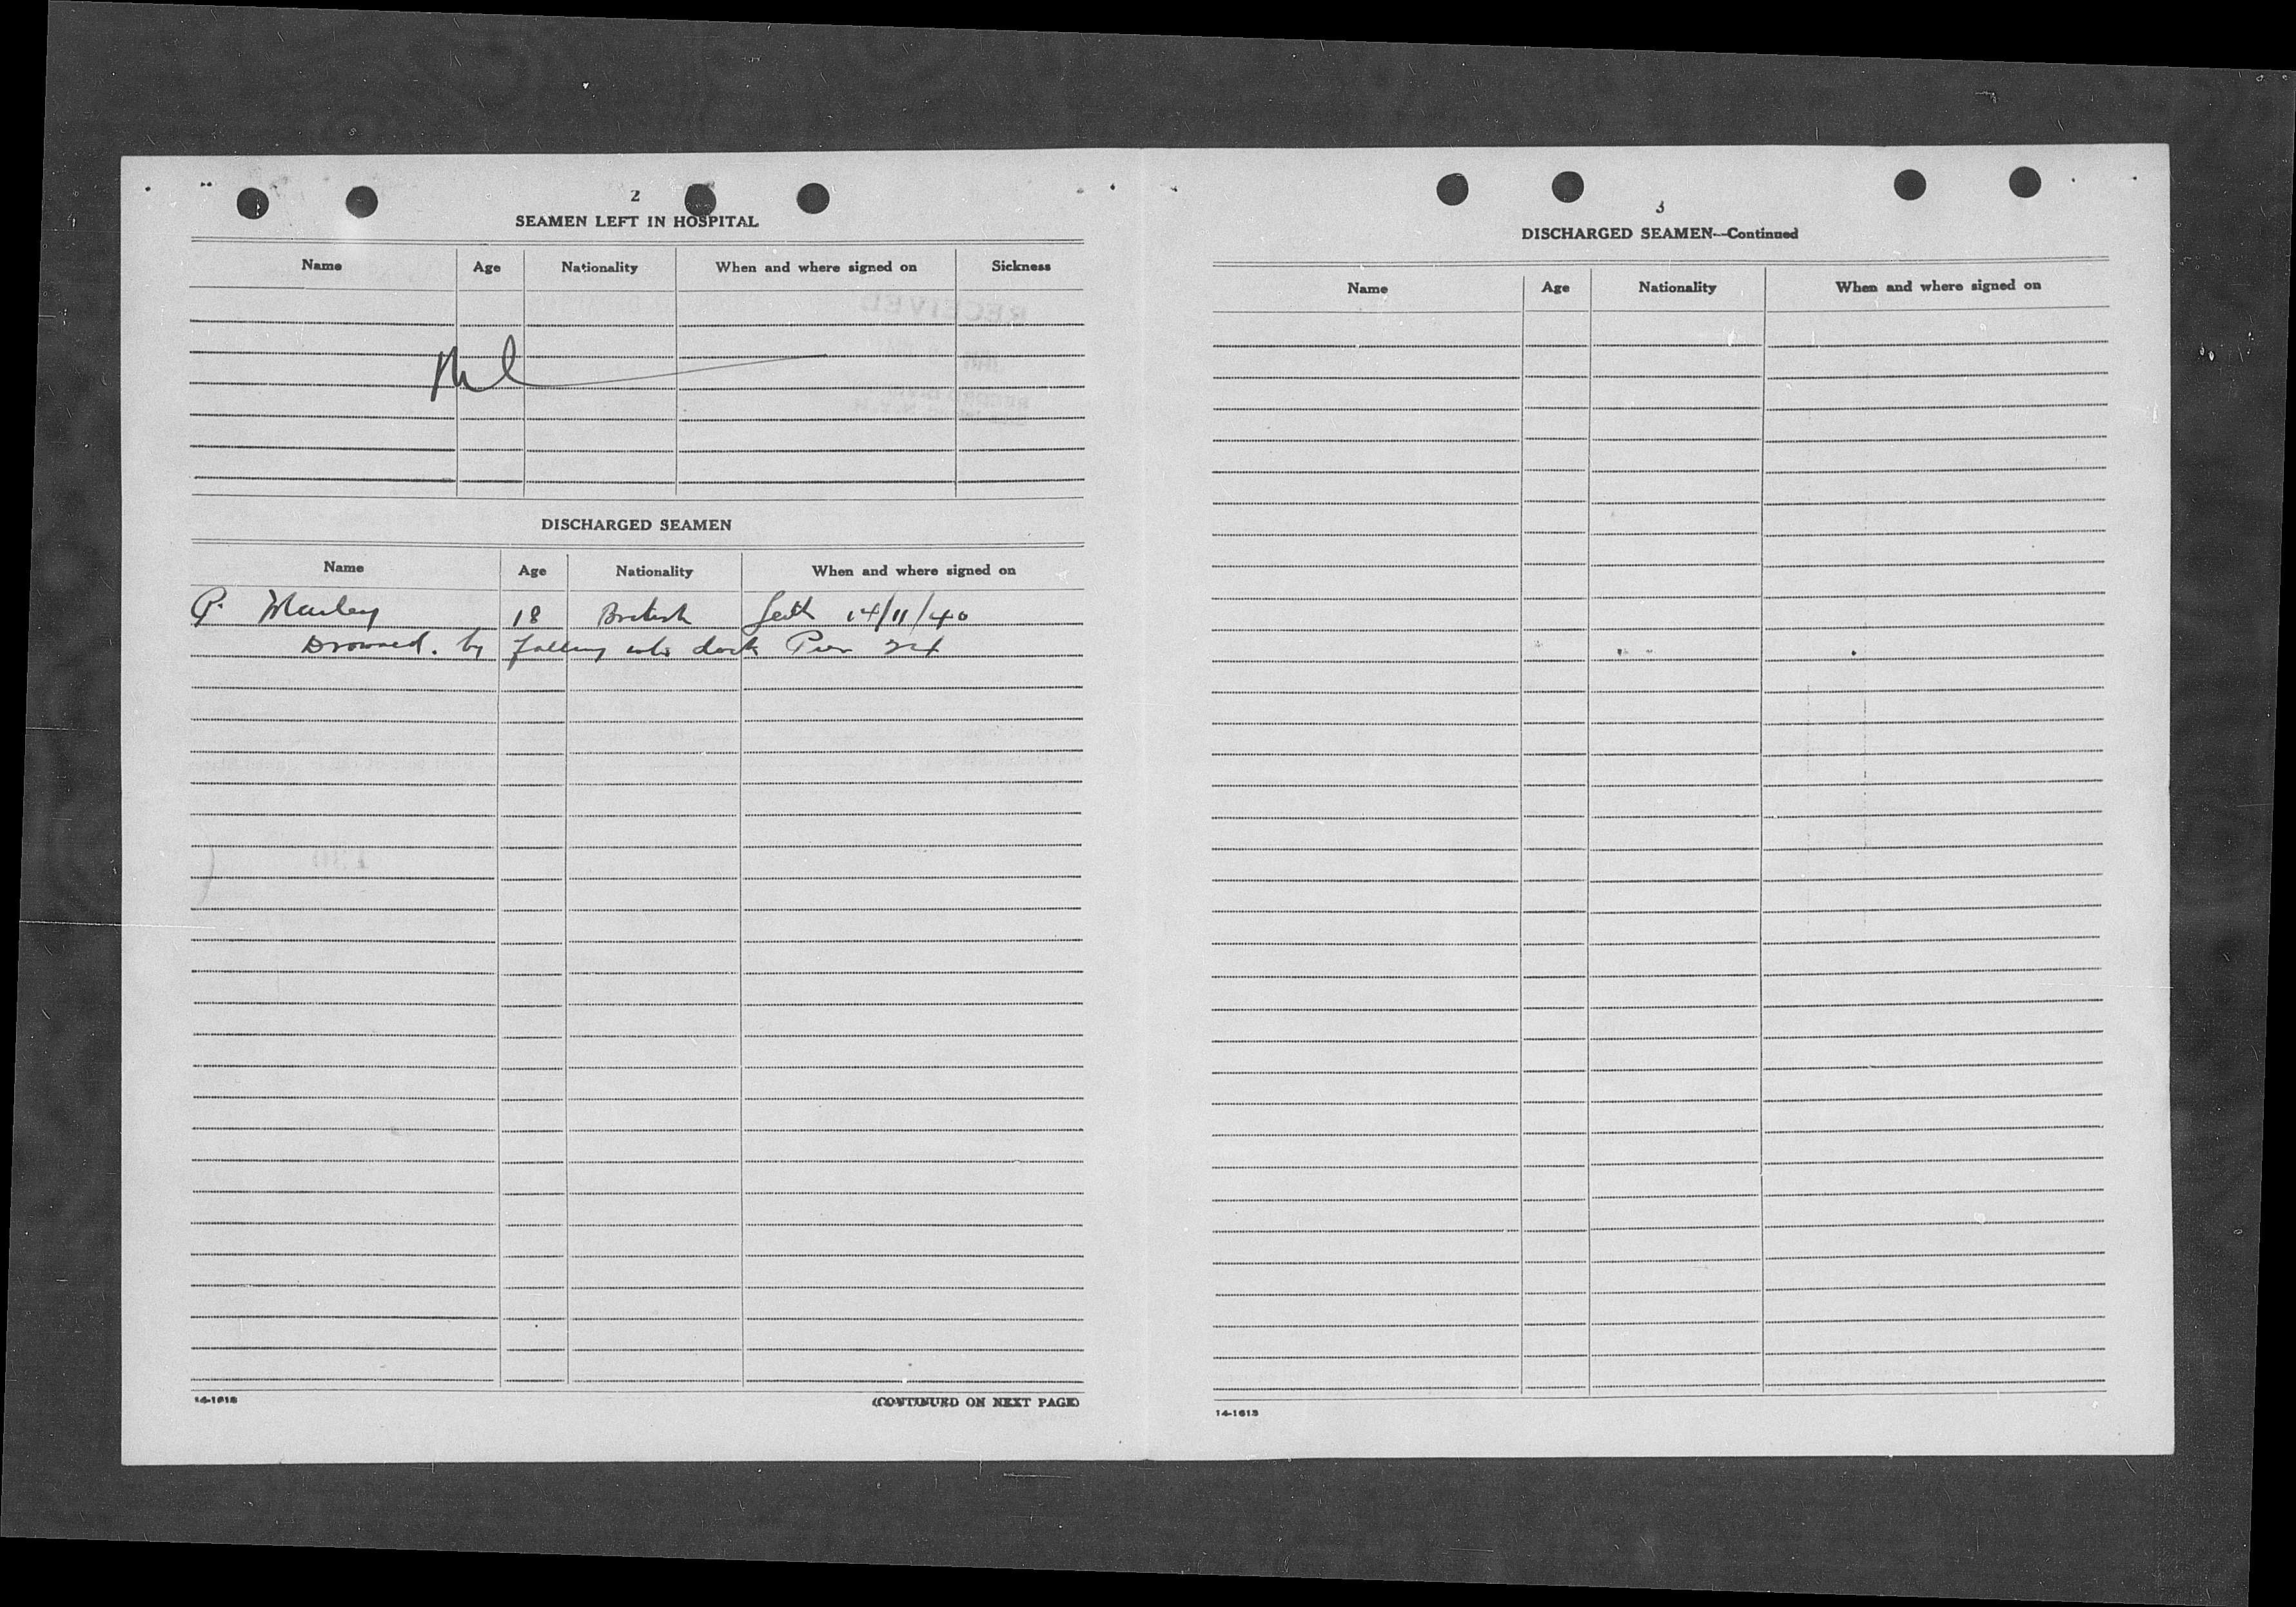 2
SEAMEN LEFT IN HOSPITAL
Name Age Nationality When and where signed on Sickness
Nil
DISCHARGED SEAMEN
Name Age Nationality When and where signed on
P. Manley 18 British Leith 14/11/40
Drowned. by falling into dock Pier 24
14-1613
(CONTINUED ON NEXT PAGE)
3
DISCHARGED SEAMEN—Continued
Name Age Nationality When and where signed on
14-1613